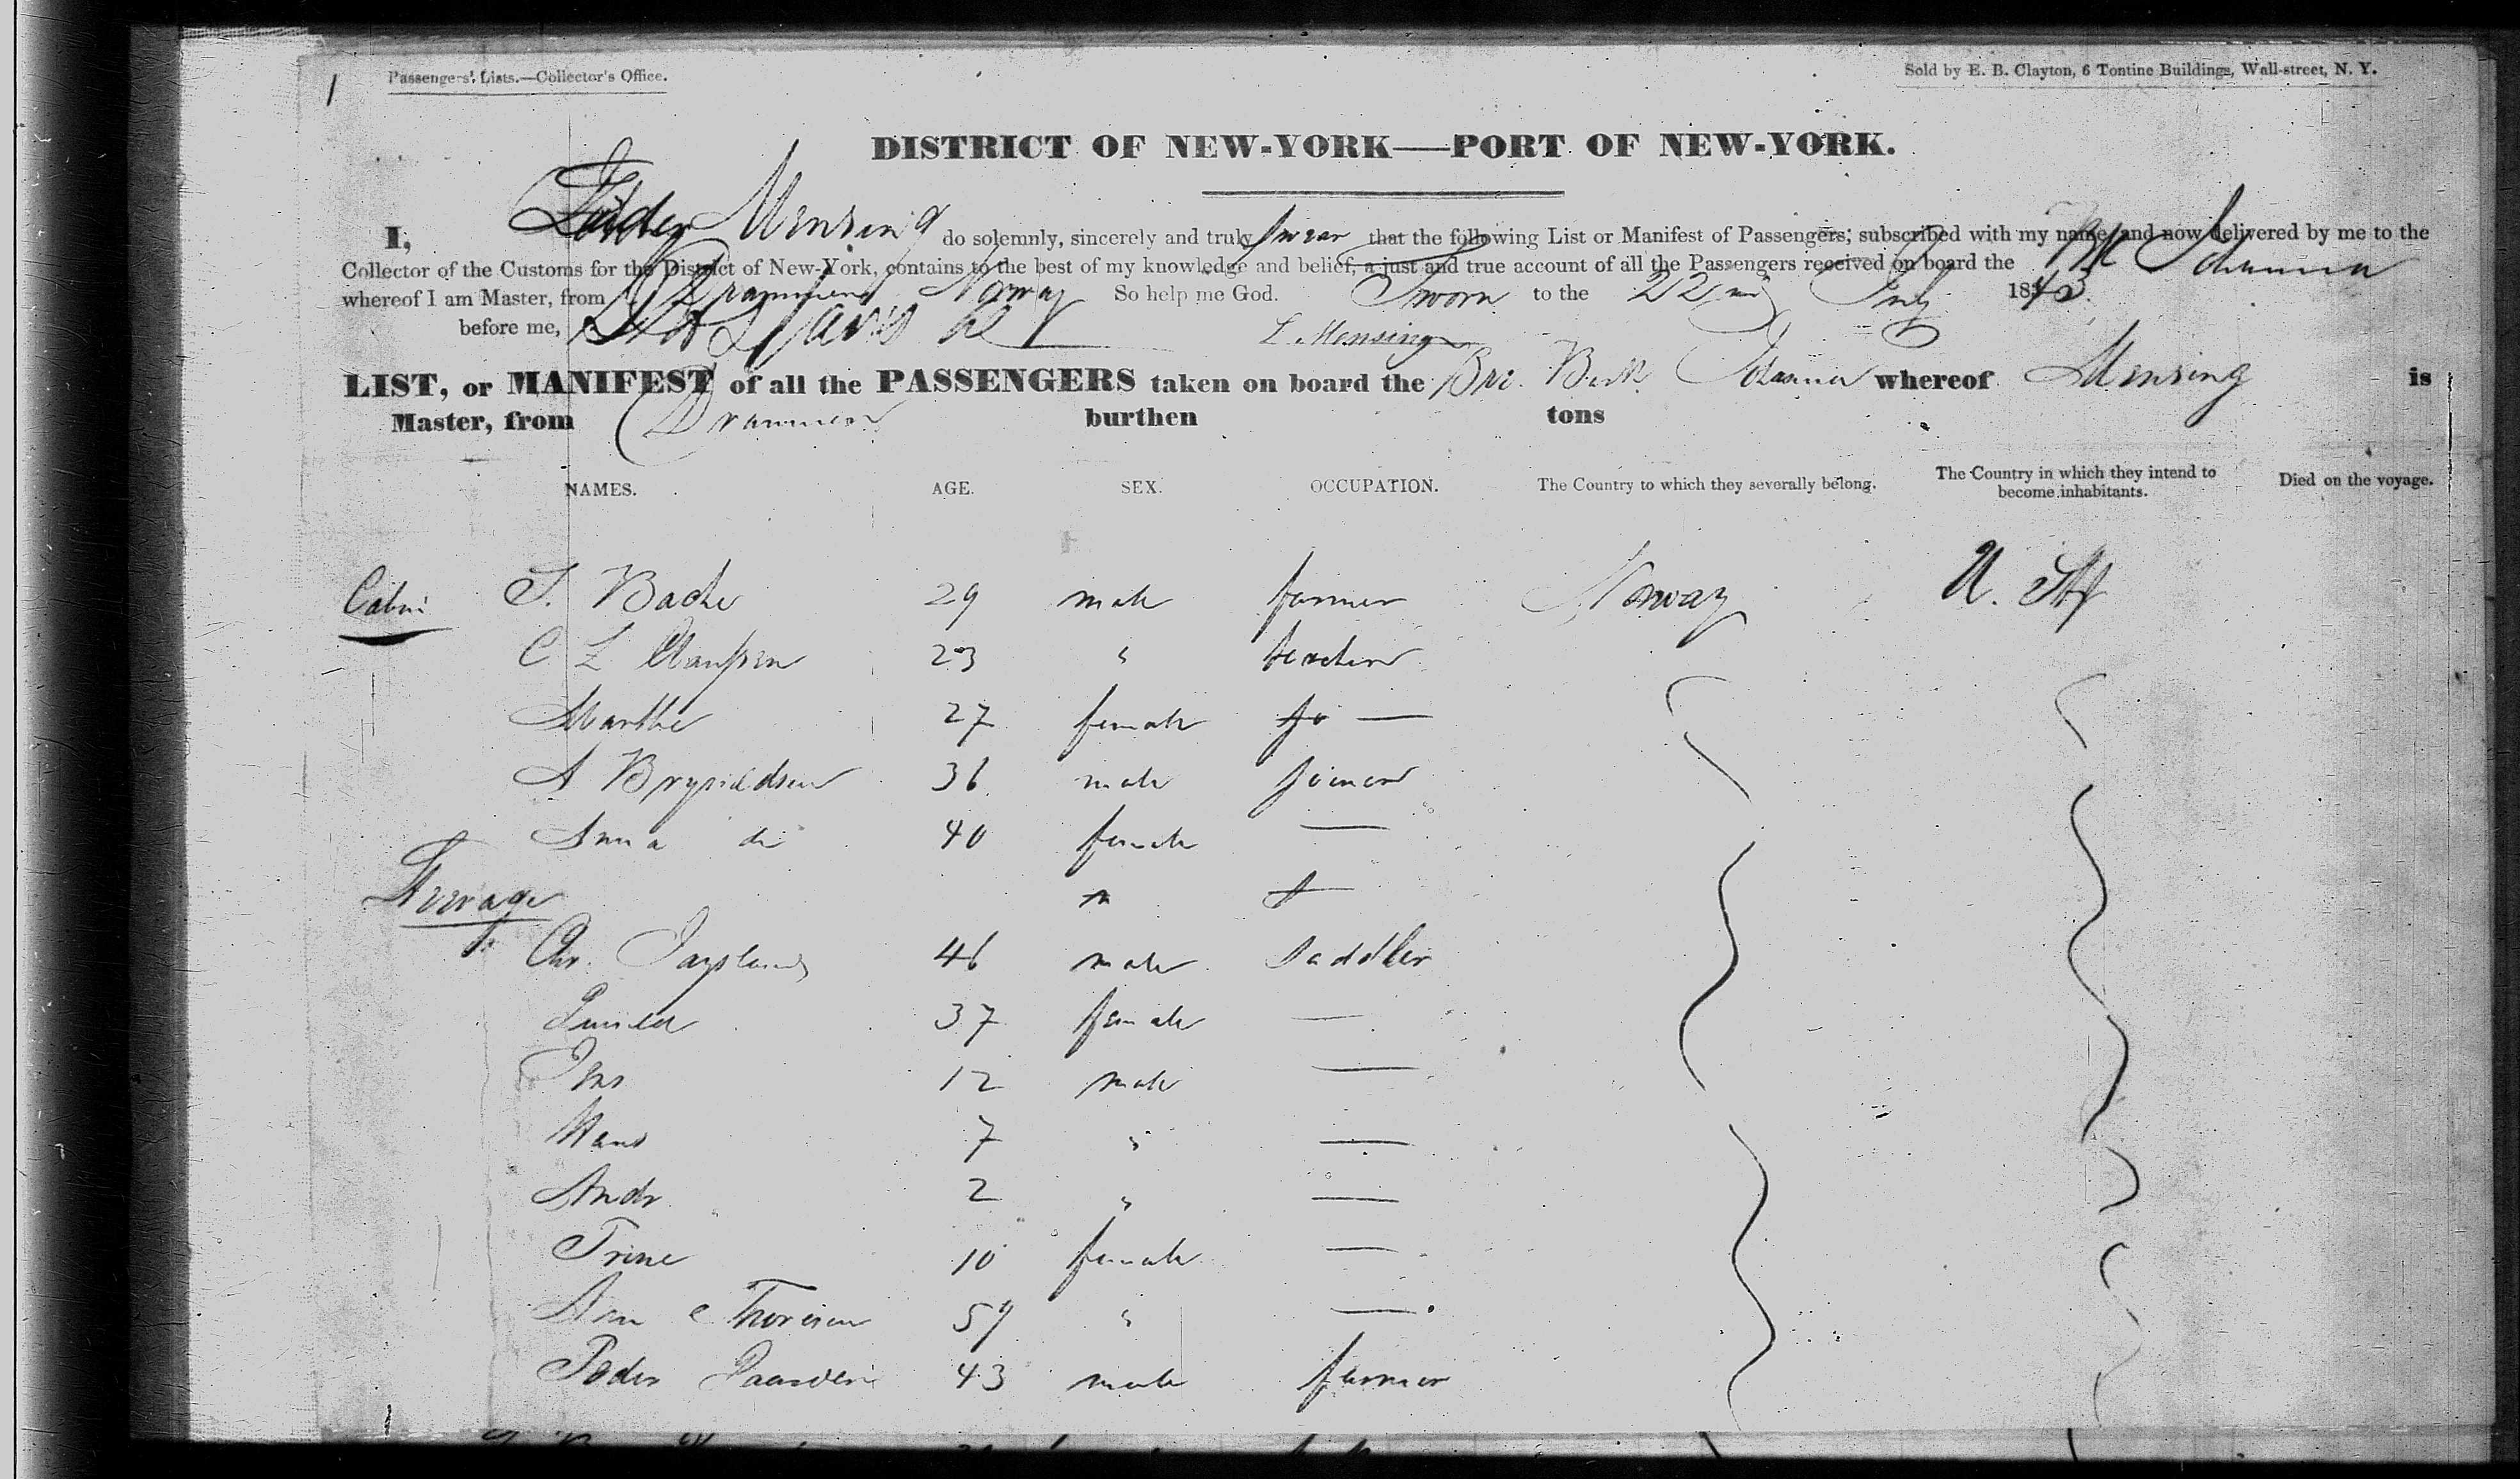 1
Passengers' Lists.—Collector's Office.
Sold by E. B. Clayton, 6 Tontine Buildings, Wall-street, N. Y.
DISTRICT OF NEW-YORK—PORT OF NEW-YORK.
I, Mensing do solemnly, sincerely and truly swear that the following List or Manifest of Passengers, subscribed with my name, and now delivered by me to the
Collector of the Customs for the District of New-York, contains to the best of my knowledge and belief, a just and true account of all the Passengers received on board the Johanna
whereof I am Master, from Drammen Norway So help me God. Sworn to the 22nd July 1843.
before me, L. Mensing
LIST, or MANIFEST of all the PASSENGERS taken on board the Bre. Bark Johanna whereof Mensing is
Master, from Drammen burthen tons
NAMES. AGE. SEX. OCCUPATION. The Country to which they severally belong. The Country in which they intend to become inhabitants. Died on the voyage.
Cabin S. Bache 29 male farmer Norway U. Sts
C L Claussen 23 " teacher
Marthe 27 female —
A 36 male joiner
Anna do 40 female —
Steerage
Chr. 46 male Saddler
Gunild 37 female —
Jens 12 male —
Hans 7 " —
Andr 2 " —
Trine 10 female —
Ann e Thoresen 59 " —
Peder 43 male farmer